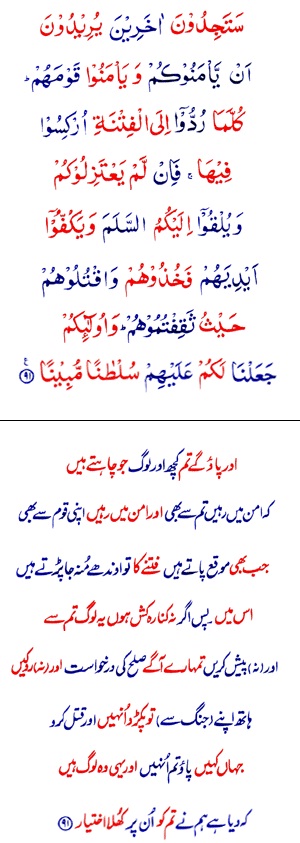 سَتَجِدُوْنَ اٰخَرِيْنَ يُرِيْدُوْنَ
اَنْ يَّاْمَنُوْكُمْ وَ يَاْمَنُوْا قَوْمَهُمْ ؕ
كُلَّمَا رُدُّوْۤا اِلَى الْفِتْنَةِ اُرْكِسُوْا
فِيْهَا ۚ فَاِنْ لَّمْ يَعْتَزِلُوْكُمْ
وَ يُلْقُوْۤا اِلَيْكُمُ السَّلَمَ وَ يَكُفُّوْۤا
اَيْدِيَهُمْ فَخُذُوْهُمْ وَ اقْتُلُوْهُمْ
حَيْثُ ثَقِفْتُمُوْهُمْ ؕ وَ اُولٰٓئِكُمْ
جَعَلْنَا لَكُمْ عَلَيْهِمْ سُلْطٰنًا مُّبِيْنًا ﴿۹۱﴾ ع
اور پاؤ گے تم کچھ اور لوگ جو چاہتے ہیں
کہ امن میں رہیں تم سے بھی اور امن میں رہیں اپنی قوم سے بھی
جب بھی موقع پاتے ہیں فتنے کا تو اوندھے مُنہ جا پڑتے ہیں
اس میں پس اگر نہ کنارہ کش ہوں یہ لوگ تم سے
اور (نہ) پیش کریں تمہارے آگے صلح کی درخواست اور (نہ) روکیں
ہاتھ اپنے (جنگ سے) تو پکڑو اُنہیں اور قتل کرو
جہاں کہیں پاؤ تم اُنہیں اور یہی وہ لوگ ہیں
کہ دیا ہے ہم نے تم کو اُن پر کُھلا اختیار ﴿۹۱﴾